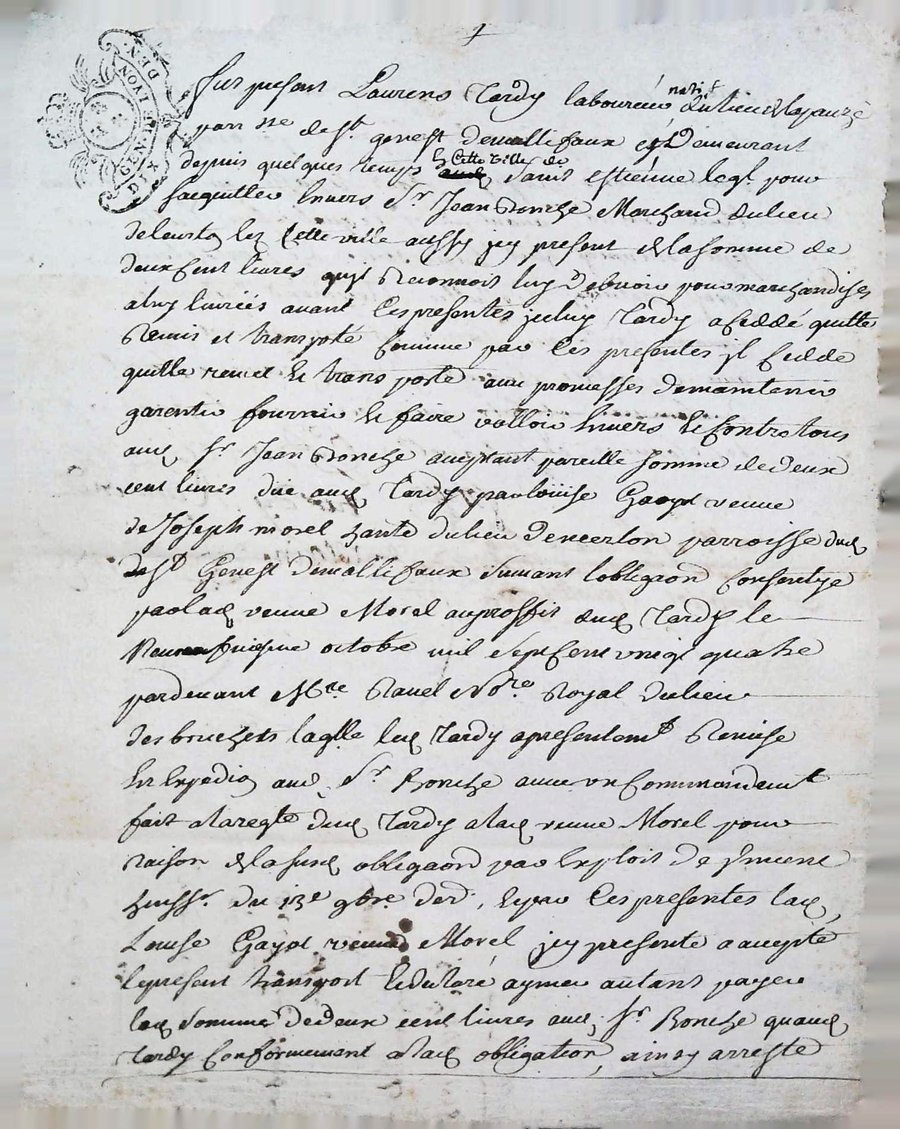 GEN. DE LYON
DIX DEN.
fut present Laurens Tardy laboureur natif du lieu de
parr sse de St genest demallifaux et Demeurant
depuis quelques temps en Cette ville de saint estienne leql pour
sacquitter Envers Sr Jean Ronche Marchand du lieu
lez Cette ville aussy jcy present de la somme de
deux Cent livres quil Reconnoit luy Debvoir pour marchandises
a luy livrées avant Ces presentes jceluy Tardy a Ceddé quitte
Remis et transporté Comme par Ces presentes jl Cedde
quitte remet Et transporte avec promesses de maintenir
garentir fournir Et faire valloir Envers Et Contre tous
aud Sr Jean Ronche acceptant pareille somme de deux
cent livres due aud Tardy par loüise Gayot veuve
de Joseph morel du lieu parroisse dud
St Genest demallifaux suivant lobligaon Consentye
par lad veuve Morel au proffit dud Tardy le
octobre mil sept Cent vingt quatre
pardevant Mtre Ravel Nore Royal du lieu
des bruchets laqlle led Tardy a presentemt Remise
En Expedion aud Sr Ronche avec un Commandemt
fait a la regte dud Tardy a lad veuve Morel pour
raison de la susd obligaon par Exploit de Vincent
huissr du 13e 9bre der, Et par Ces presentes lad
Louise Gayot veuve Morel jcy presente a accepté
le present transport Et declaré aymer autant payer
lad somme de deux cent livres aud Sr Ronche quaud
Tardy Conformement a lad obligation, ainsy arresté